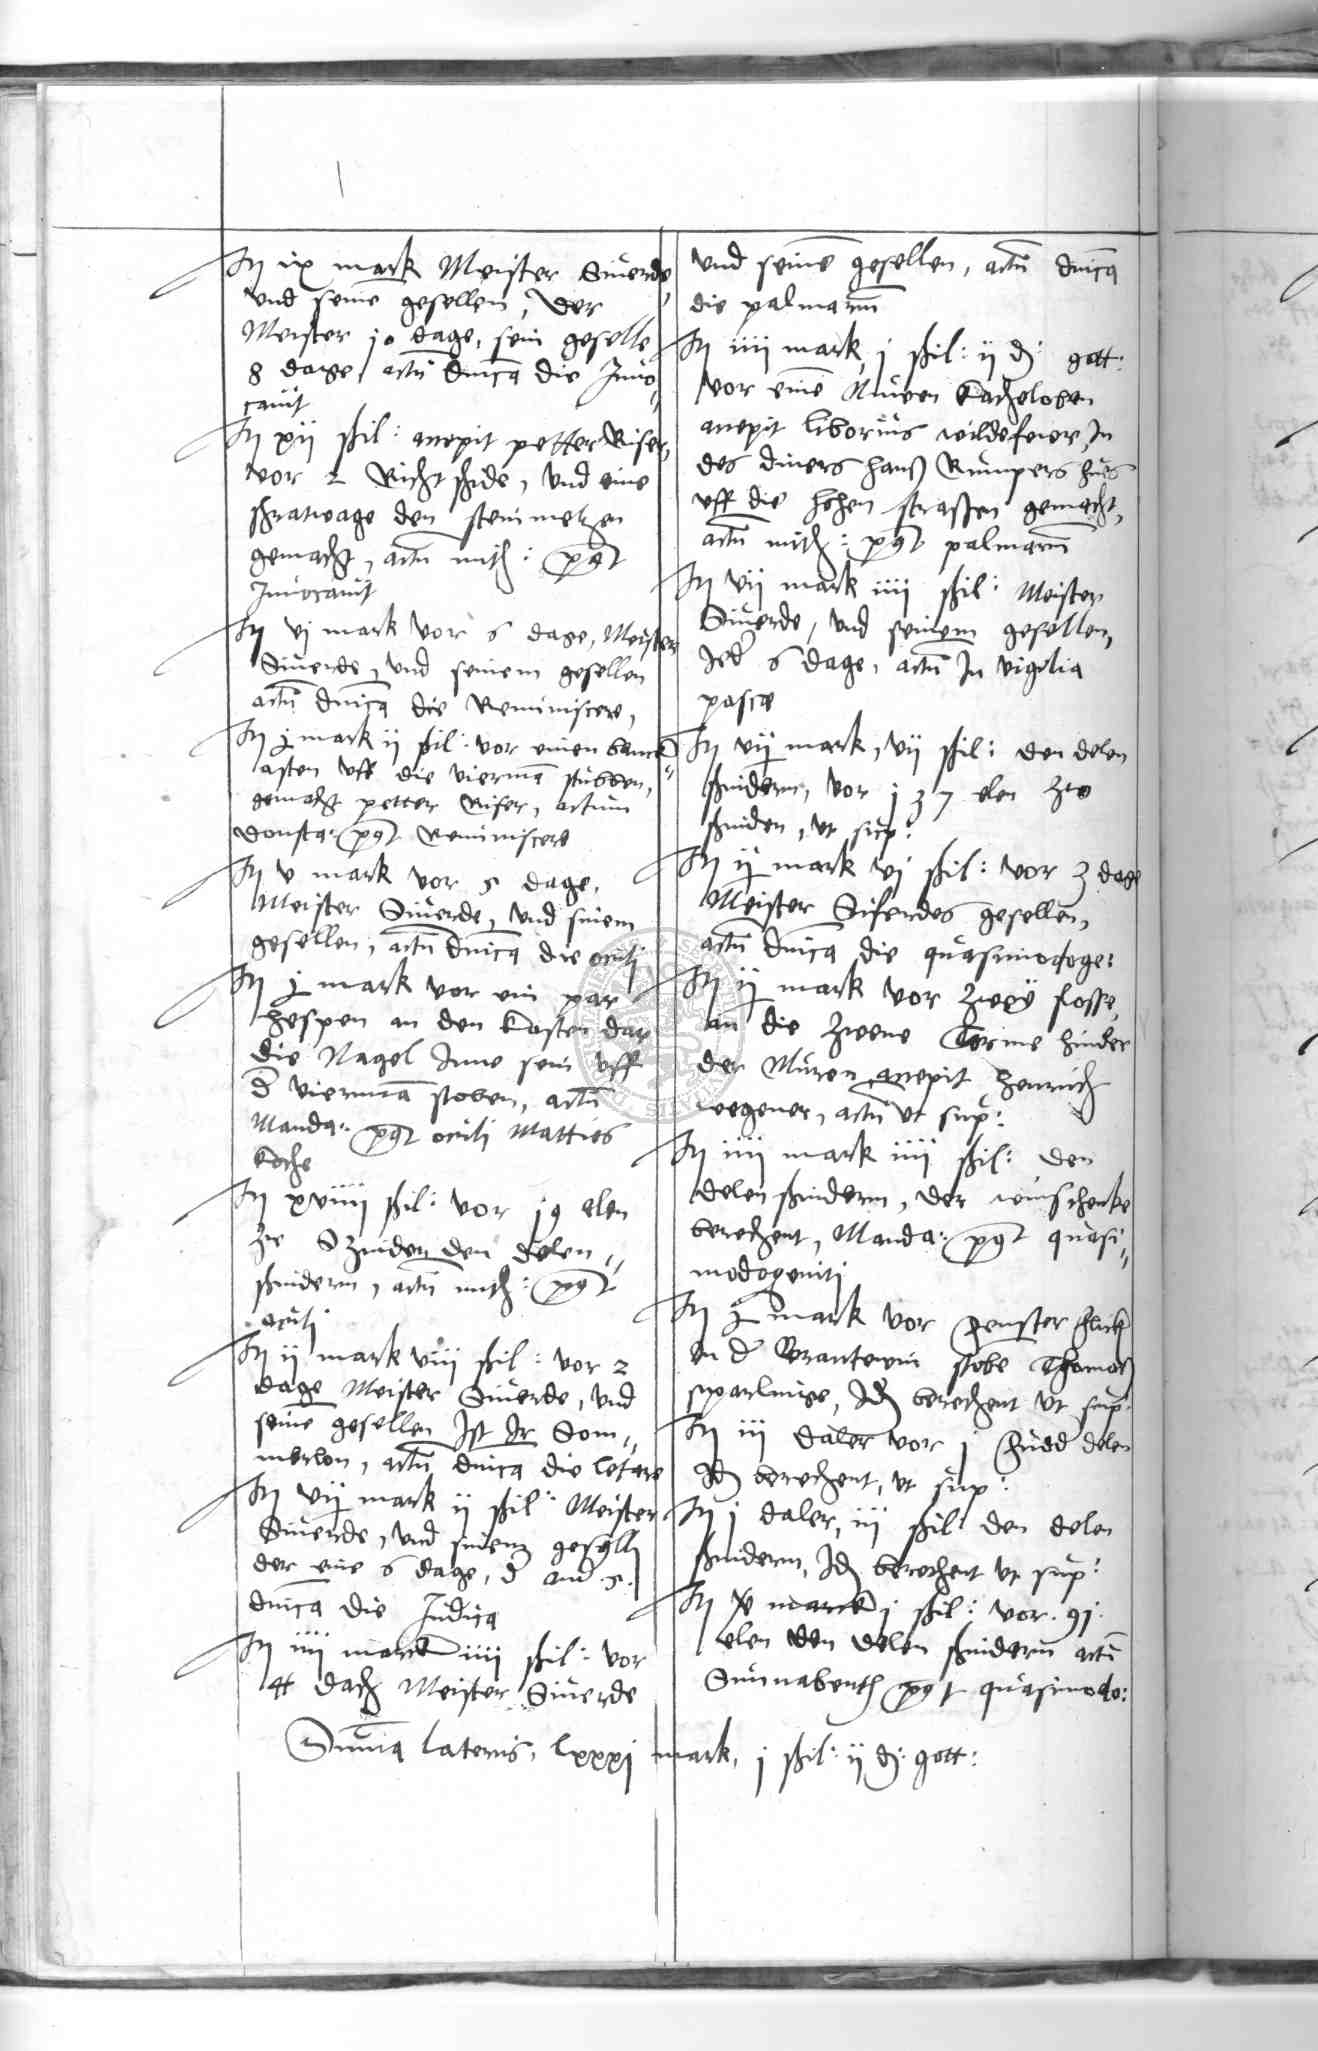 It ix mark Meister Siuerde,
vnd seinē gesellen, der
Meister 10 dage, sein geselle
8 dage, actū dnīca die Inuo„
cauit
It xij ßhil: accepit petter Riser,
vor 2 Richtshide, vnd eine
shratwage den steinmetzen
gemacht, actū mith: post
Inuocauit
It vj mark vor 6 dage, Meister
Siuerde, vnd seinem gesellen
actū dnīca die Reminiscere,
It j mark ij ßhil: vor einen
asten vff die viermā stubben,
gemacht petter Riser, actum
donsta: post Reminiscere
It v mark vor 5 dage,
Meister Siuerde, vnd sinem
gesellen, actū dnīca die oculi
It j mark vor ein par
hespen an den kasten dar
die Nagel Inne sein vff
d viermā stoben, actū
Manda: post oculi Matties
koche
It xviiij ßhil: vor 19 elen
zu den delen„
shnidern, actū mith: post
oculi
It ij mark viij ßhil: vor 2
dage Meister Siuerde, vnd
seinē gesellen Ist Ir Som„
merlon, actū dnica die letare
It vij mark ij ßhil: Meister
Siuerde, vnd sinem gesellen
der eine 6 dage, d and 5.
dnīca die Judica
It iiij marck iiij ßhil: vor
4 dach Meister Siuerde
vnd seinē gesellen, actū dnīca
die palmarū
It iiij mark j ßhil: ij d: gott:
vor einē Nuwen kacheloben
accepit liborius wildefeier, In
des diners hanß Rumpers hus
vff die hohen strassen gemacht,
actū mith: post palmarū
It vij mark iiij ßhil: Meister
Siuerde, vnd seinem gesellen,
Jed 6 dage, actū In vigilia
pasce
It vij mark, vij ßhil: den delen
shnidern, vor 137 elen zu
shniden, vt sup:
It ij mark vj ßhil: vor 3 dage
Meister Siferdes gesellen,
actū dnīca die quasimodoge:
It ij mark vor zwey slosse,
an die zweene Torme hinder
der Muren accepit Henrich
wegener, actū vt sup:
It iiij mark iiij ßhil: den
delen shnidern, der winschenke
berechent, Manda: post quasi„
modogeniti
It j mark vor fenster flick
In d brantewin stobe Thomas
sparlinge, Id berechent vt sup:
It iij daler vor j fudd delen
Id berechent, vt sup:
It j daler, iij ßhil: den delen
shnidern, Id berechent vt sup:
It marck j ßhil: vor 91
elen den delen shnidern actū
Sunnabenth post quasimodo:
Summa lateris, lxxxj mark, j ßhil: ij d: gott: